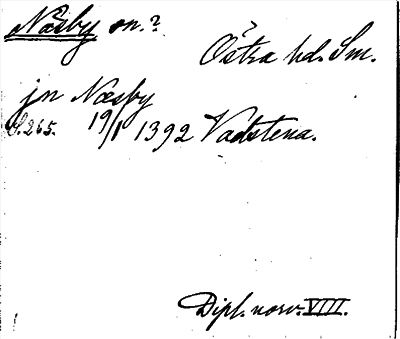 Næsby sn.?
Östra hd. Sm.
jn Næsby
S. 265. 19/1 1392 Vadstena.
Dipl. norv. VIII.